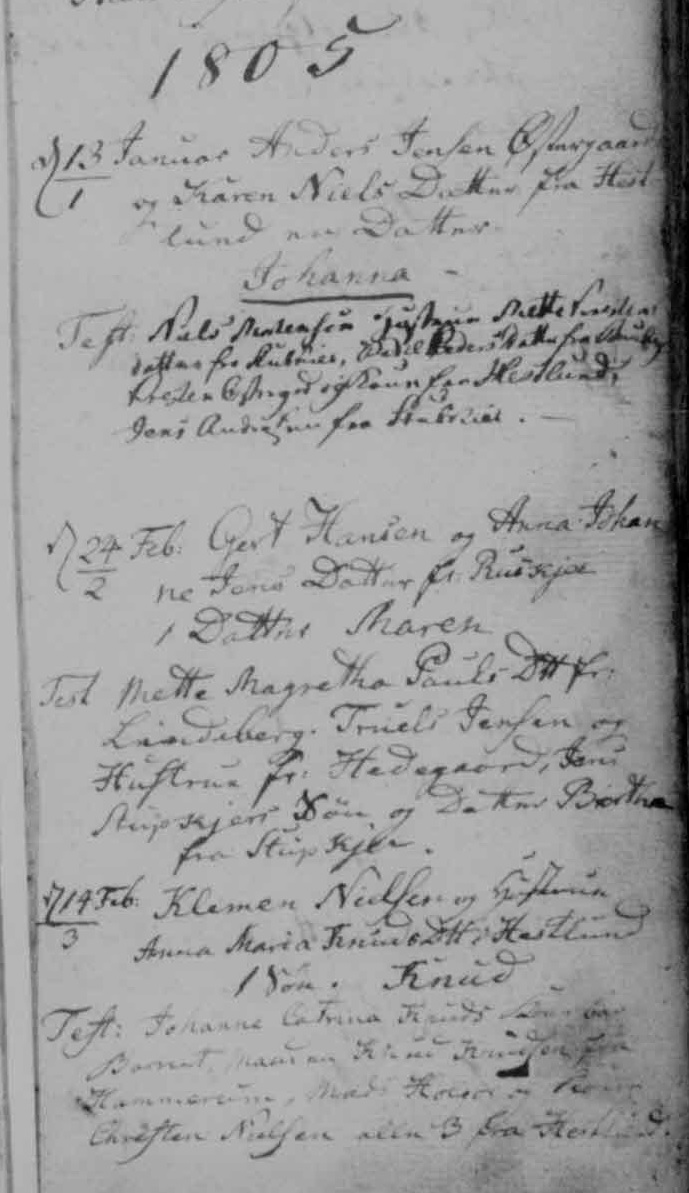 1805
d 13 Januar Anders Jensen Østergaard
1 og Karen Niels Datter fra Hest
lund en Datter
Johanna -
Test: Niels Mortensen Hustrue Mette
datter fra Peders Datter fra
og Koun fra Hestlund,
Jens Andersen fra
d 24 Feb: Gert Hansen og Anna Johan
2 ne Jens Datter fr: Ruskjæ
1 Datter Maren
Test Mette Magretha Pauls Dtt fr:
Lindeberg. Truels Jensen og
Hustrue fr: Hedegaard, Jens
Stupskjers Søn og Datter Birtha
fra Stupskjer.
d 14 Feb: Klemen Nielsen og Hustrue
3 Anna Maria Knuds Dtt i Hestlund
1 Søn. Knud
Test: Johanne Catrina Knuds bar
Barnet, Knud Knudsen fra
Hammerum, Mads og
Christen Nielsen alle 3 fra Hestlund.